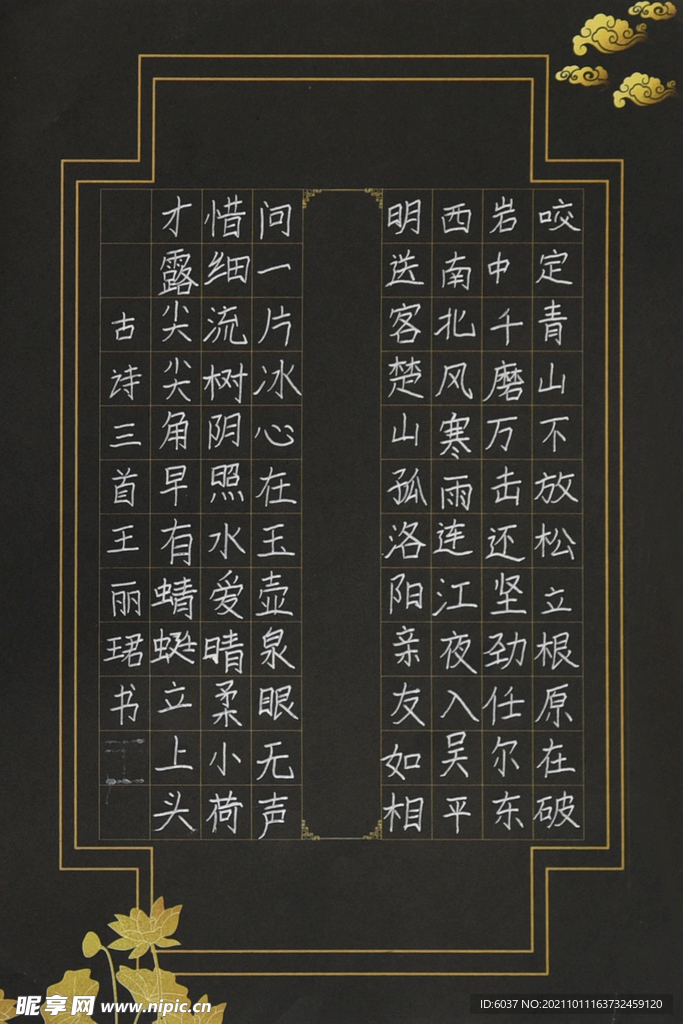 咬定青山不放松立根原在破
岩中千磨万击还坚劲任尔东
西南北风寒雨连江夜入吴平
明送客楚山孤洛阳亲友如相
问一片冰心在玉壶泉眼无声
惜细流树阴照水爱晴柔小荷
才露尖尖角早有蜻蜓立上头
古诗三首王丽珺书
昵享网 www.nipic.cn
ID:6037 NO:20211011163732459120